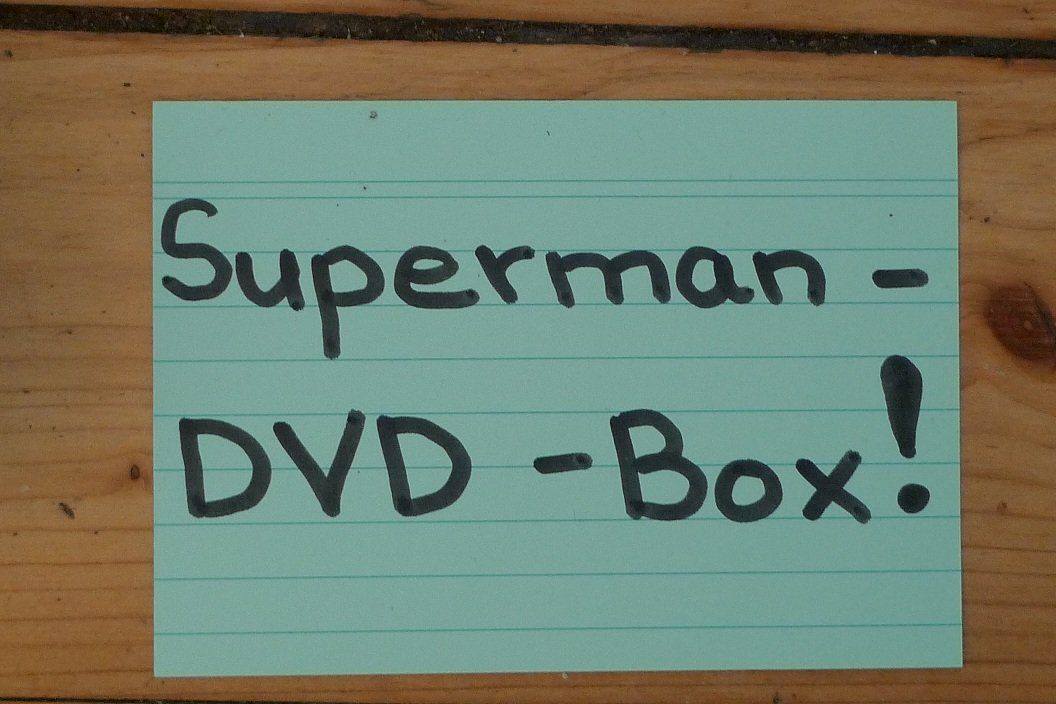 Superman -
DVD - Box!